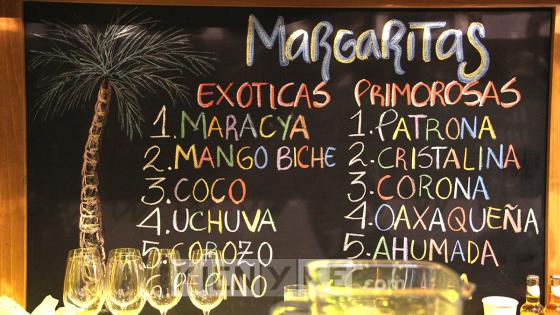 MARGARITAS
EXOTICAS
1. MARACYA
2. MANGO BICHE
3. COCO
4. UCHUVA
5. COROZO
6 PEPINO
PRIMOROSAS
1. PATRONA
2. CRISTALINA
3. CORONA
4. OAXAQUEÑA
5. AHUMADA